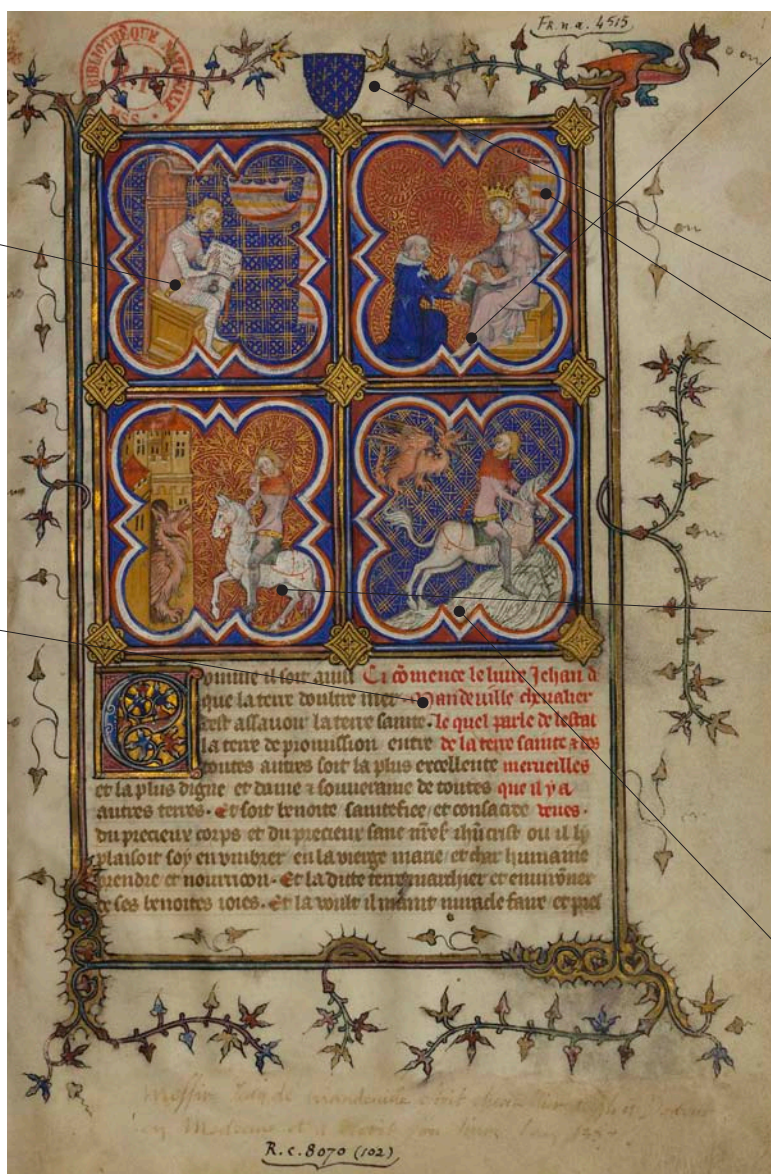 Fr. n. a. 4515
BIBLIOTHÈQUE NATIONALE
MSS
omme il soit ainsi Ci cõmence le liure Jehan d
que la terre doultre mer Mandeuille cheualier
cest assauoir la terre sainte. le quel parle de lestat
la terre de promission entre de la terre sainte
toutes autres soit la plus excellente merueilles
et la plus digne et dame souueraine de toutes que il y a
autres terres. Et soit benoite saintefiee et consacree veues.
du precieux corps et du precieux sanc ihũcrist ou il li
plaisoit soy en vmbrer en la vierge marie et char humaine
prendre et nourricon. Et la dicte terre marchier et enuirõner
de ses benoites Et la voult il maint miracle faire et
R. c. 8070 (102)